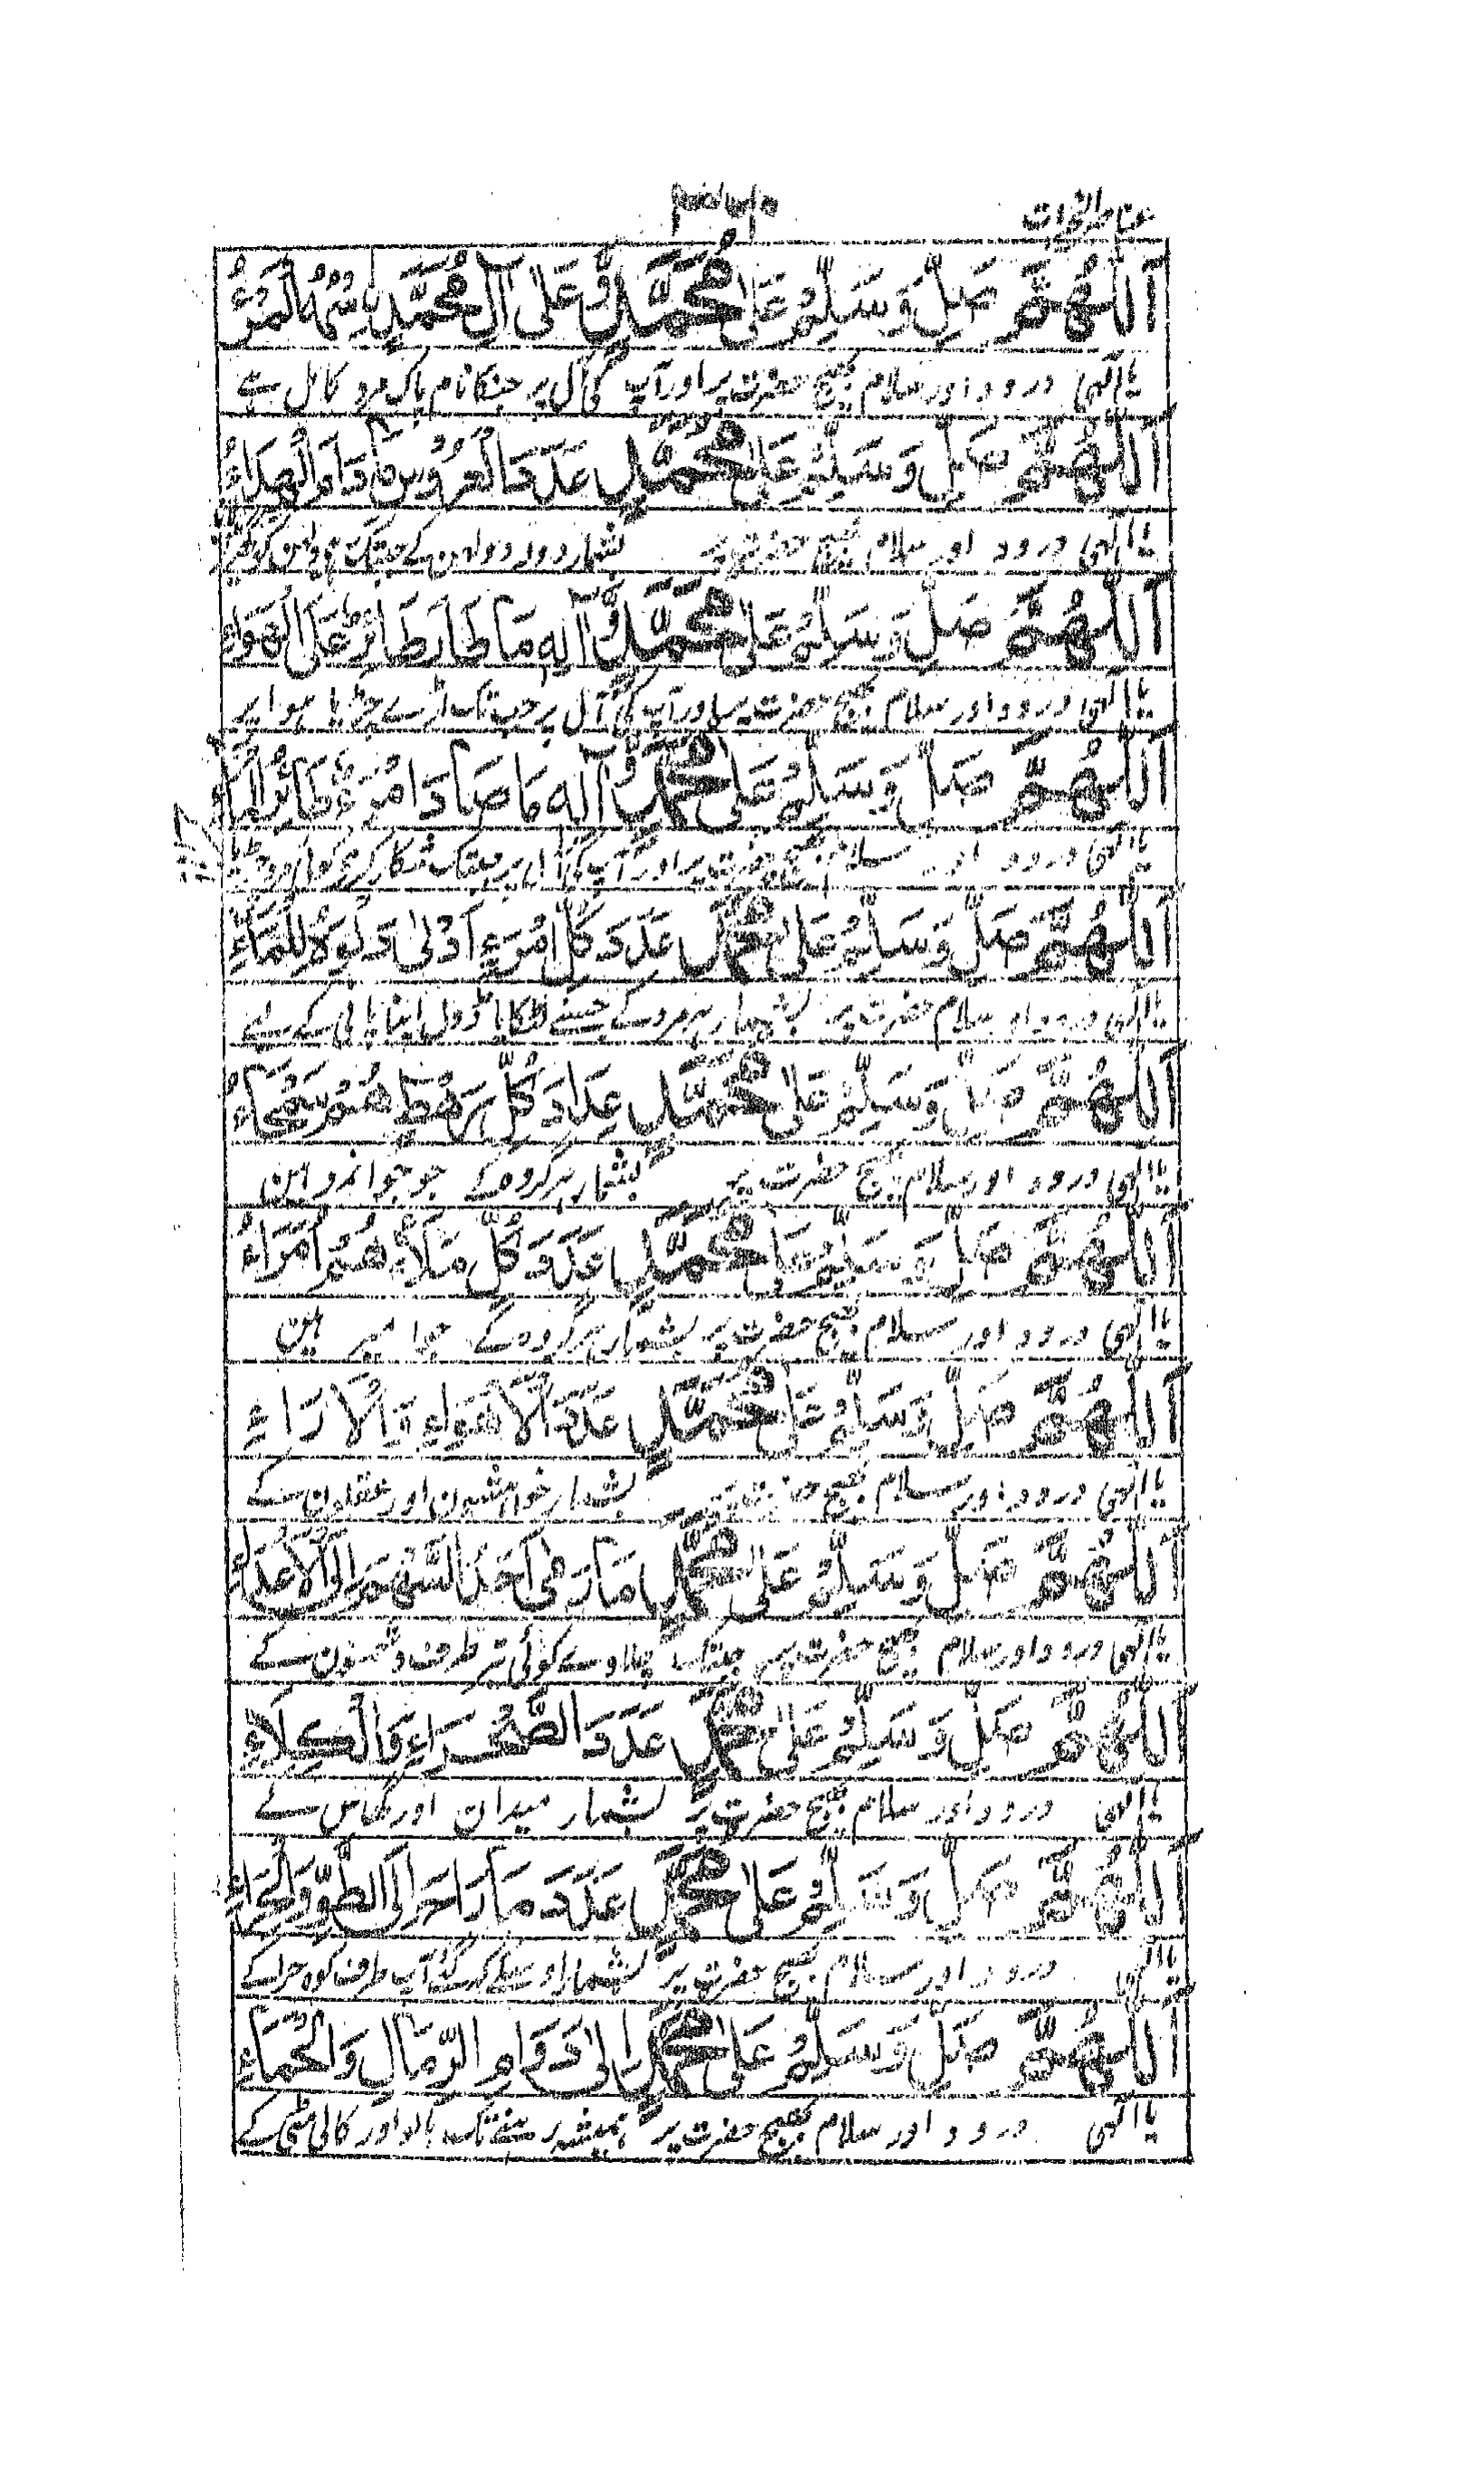 اَللّٰهُمَّ صَلِّ وَسَلِّمْ عَلٰی مُحَمَّدٍ وَّعَلٰی اٰلِ مُحَمَّدٍ
یا الٰہی درود اور سلام بھیج حضرت پر اور آپ کی آل پر جنکا نام پاک مرد کامل ہے
اَللّٰهُمَّ صَلِّ وَسَلِّمْ عَلٰی مُحَمَّدٍ عَدَدَ الْعَرُوْسِ
یا الٰہی درود اور سلام بھیج حضرت پر بشمار
اَللّٰهُمَّ صَلِّ وَسَلِّمْ عَلٰی مُحَمَّدٍ وَّاٰلِهٖ مَا طَارَ طَائِرٌ عَلَی الْهَوَاءِ
یا الٰہی درود اور سلام بھیج حضرت پر اور آپ کی آل پر جب تک اڑے چڑیا ہوا پر
اَللّٰهُمَّ صَلِّ وَسَلِّمْ عَلٰی مُحَمَّدٍ وَّاٰلِهٖ مَا صَادَ امْرَءٌ
یا الٰہی درود اور سلام بھیج حضرت پر اور آپ کی آل پر جبتک شکار کرے کوئی مرد
اَللّٰهُمَّ صَلِّ وَسَلِّمْ عَلٰی مُحَمَّدٍ عَدَدَ كُلِّ امْرَءٍ اَدْلٰی دَلْوَهٗ لِلْمَاءِ
یا الٰہی درود اور سلام حضرت پر بشمار ہر مرد کے جسنے لٹکایا ڈول اپنا پانی کے لئے
اَللّٰهُمَّ صَلِّ وَسَلِّمْ عَلٰی مُحَمَّدٍ عَدَدَ كُلِّ رَهْطٍ هُمْ
یا الٰہی درود اور سلام بھیج حضرت پر بشمار ہر گروہ کے جو جوانمرد ہین
اَللّٰهُمَّ صَلِّ وَسَلِّمْ عَلٰی مُحَمَّدٍ عَدَدَ كُلِّ مَلَاءٍ هُمْ اُمَرَاءُ
یا الٰہی درود اور سلام بھیج حضرت پر بشمار ہر گروہ کے جو امیر ہین
اَللّٰهُمَّ صَلِّ وَسَلِّمْ عَلٰی مُحَمَّدٍ عَدَدَ الْاَهْوَاءِ وَالْاٰرَاءِ
یا الٰہی درود اور سلام بھیج حضرت پر بشمار خواہشون اور عقلون کے
اَللّٰهُمَّ صَلِّ وَسَلِّمْ عَلٰی مُحَمَّدٍ مَا رَمٰی اَحَدُ السَّهْمَ اِلَی الْاَعْدَاءِ
یا الٰہی درود اور سلام بھیج حضرت پر جبتک چلاوے کوئی تیر طرف دشمنون کے
اَللّٰهُمَّ صَلِّ وَسَلِّمْ عَلٰی مُحَمَّدٍ عَدَدَ الصَّحْرَاءِ وَالْكِلَاءِ
یا الٰہی درود اور سلام بھیج حضرت پر بشمار میدان اور گھاس کے
اَللّٰهُمَّ صَلِّ وَسَلِّمْ عَلٰی مُحَمَّدٍ عَدَدَ مَا رَاحَ اِلَی
یا الٰہی درود اور سلام بھیج حضرت پر بشمار اوسکے کہ گئے آپ طرف کوہ حرا کے
اَللّٰهُمَّ صَلِّ وَسَلِّمْ عَلٰی مُحَمَّدٍ اِلٰی دَوَامِ الرِّمَالِ وَالْحَمَاءِ
یا الٰہی درود اور سلام بھیج حضرت پر ہمیشہ رہنے تک بالو اور کالی مٹی کے